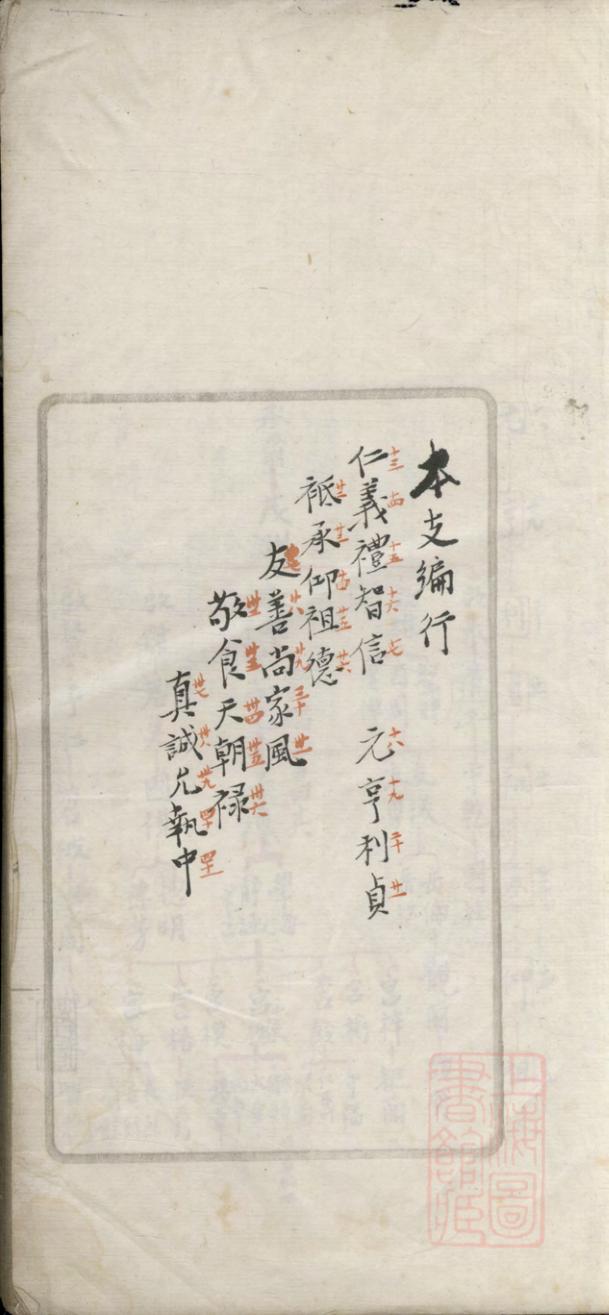 本支編行
仁十三義十四禮十五智十六信十七 元十八亨十九利二十貞廿一
祗廿二承廿三仰廿四祖廿五德廿六
友廿七善廿八尚廿九家三十風卅一
敬卅二食卅三天卅四朝卅五祿卅六
真卅七誠卅八允卅九執四十中四十一
上海圖書館藏